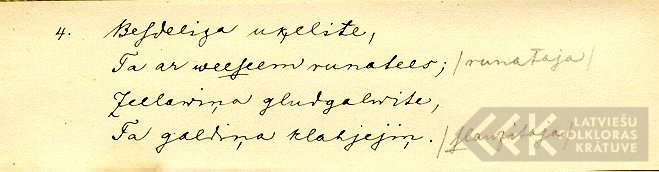 4. Besdeliga uzelite,
Ta ar weeseem runatees; /runataja/
Zeelawiņa gludgalwite,
Ta galdiņa klahjejiņ. /slauzitaja/
LATVIEŠU
FOLKLORAS
KRĀTUVE